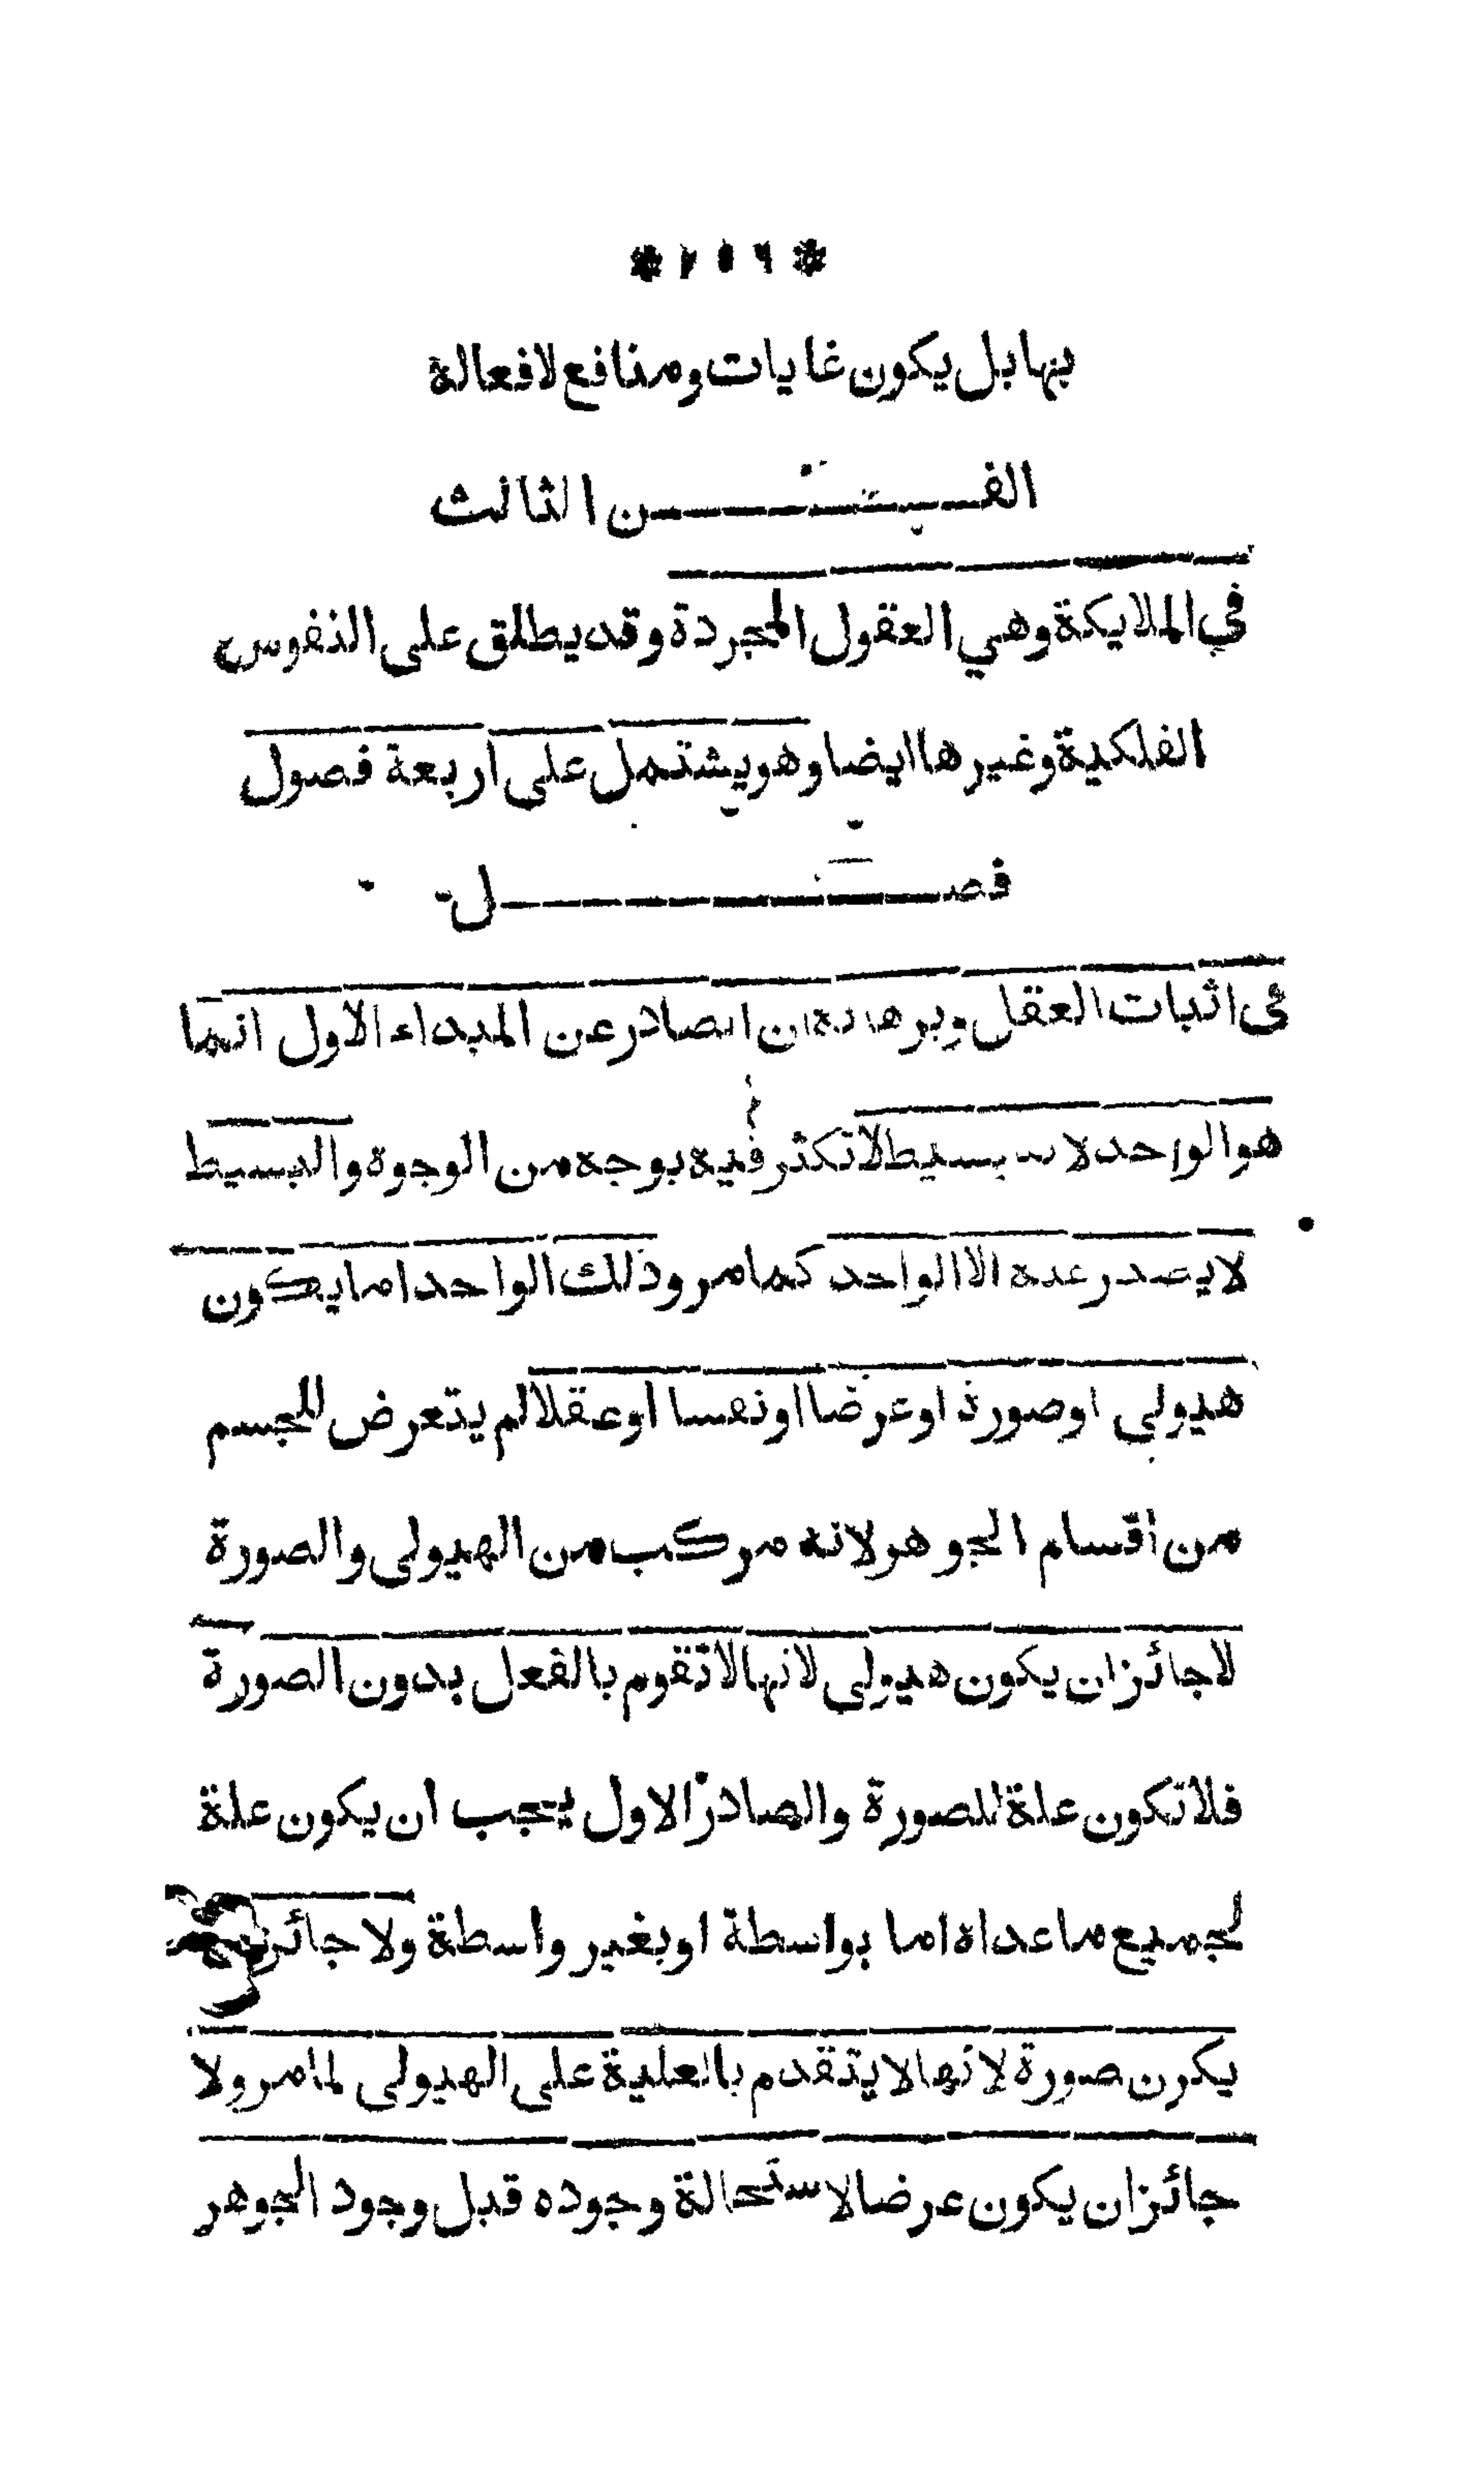 بها بل يكون غايات ومنافع لافعالة
الفـــــــن الثالث
في الملايكة وهي العقول المجردة وقد يطلق على النفوس
الفلكية وغيرها ايضا وهو يشتمل على اربعة فصول
فصـــــــل
في اثبات العقل وبرهانه ان الصادر عن المبداء الاول انما
هو الواحد لانه بسيط لا تكثر فيه بوجه من الوجوة والبسيط
لا يصدر عنه الا الواحد كما مر وذلك الواحد اما يكون
هيولى او صورة او عرضا او نفسا او عقلا لم يتعرض للجسم
من اقسام الجوهر لانه مركب من الهيولى والصورة
لا جائز ان يكون هيولى لانها لا تقوم بالفعل بدون الصورة
فلا تكون علة للصورة والصادر الاول يجب ان يكون علة
لجميع ما عداه اما بواسطة او بغير واسطة ولا جائز
يكون صورة لانها لا يتقدم بالعلية على الهيولى لما مر ولا
جائز ان يكون عرضا لاستحالة وجوده قبل وجود الجوهر